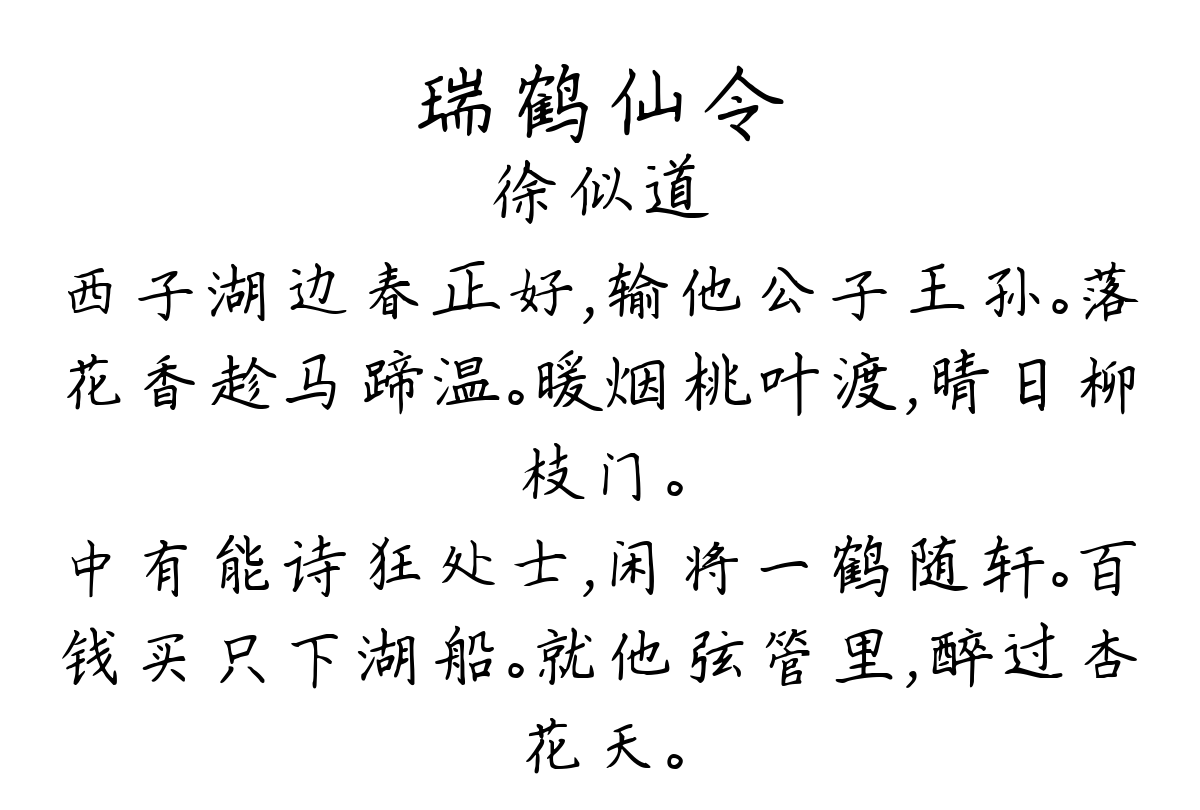 瑞鹤仙令
徐似道
西子湖边春正好,输他公子王孙。落
花香趁马蹄温。暖烟桃叶渡,晴日柳
枝门。
中有能诗狂处士,闲将一鹤随轩。百
钱买只下湖船。就他弦管里,醉过杏
花天。